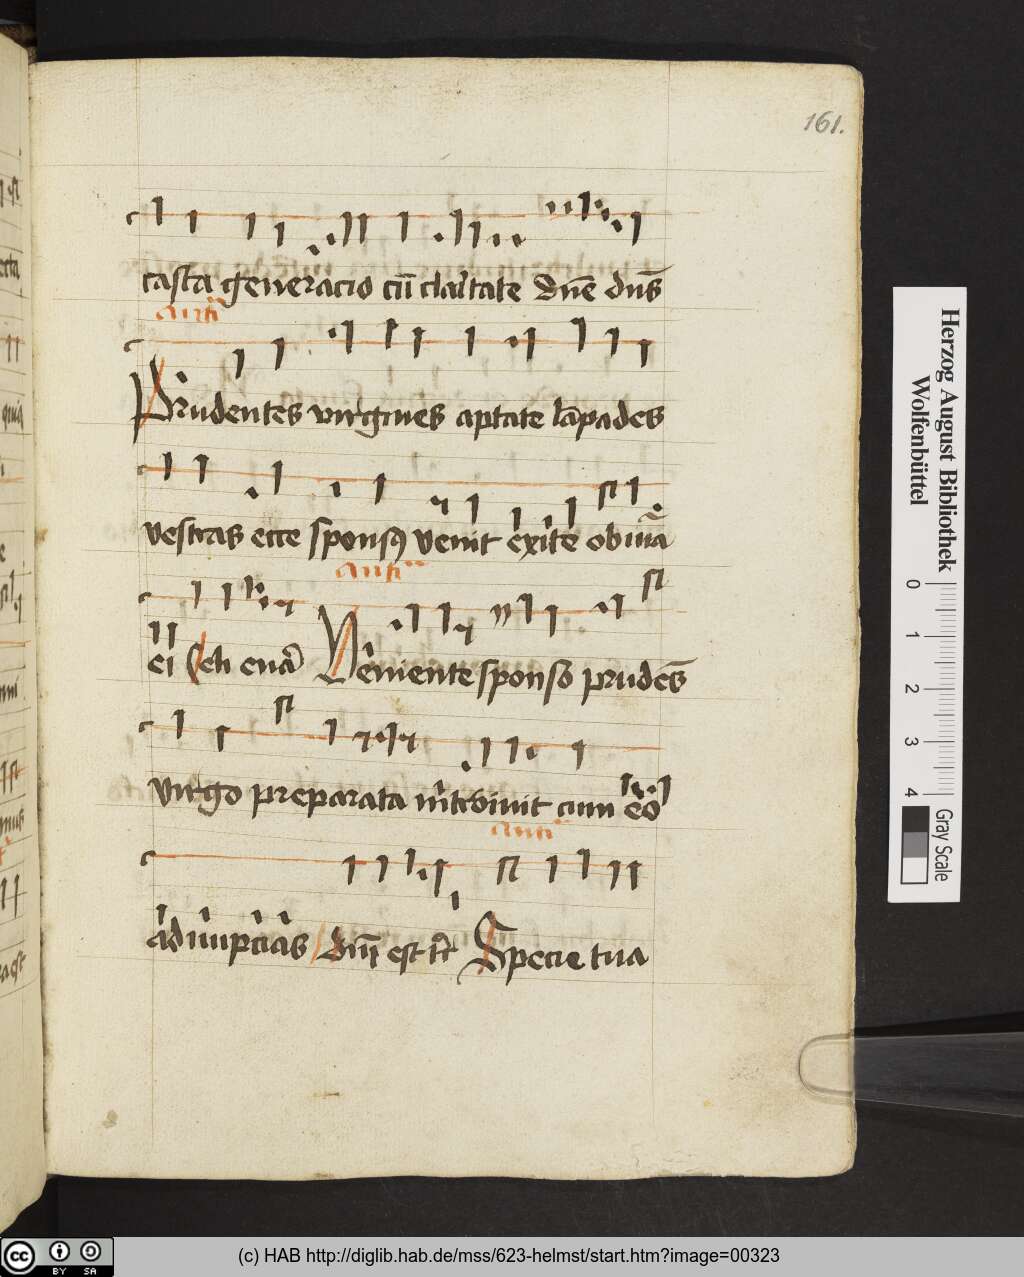 161.
casta generacio cū claritate Dn̄e dn̄s
An̄
Prudentes virgines aptate lāpades
vestras ecce sponsꝯ venit exite obuiā
An̄
ei Seculorum euā Veniente sponso prudēs
virgo preparata introiuit cum eo
An̄
ad nupcias Dn̄i est tr̄ Specie tua
Herzog August Bibliothek
Wolfenbüttel
0 1 2 3 4
Gray Scale
cc BY SA
(c) HAB http://diglib.hab.de/mss/623-helmst/start.htm?image=00323